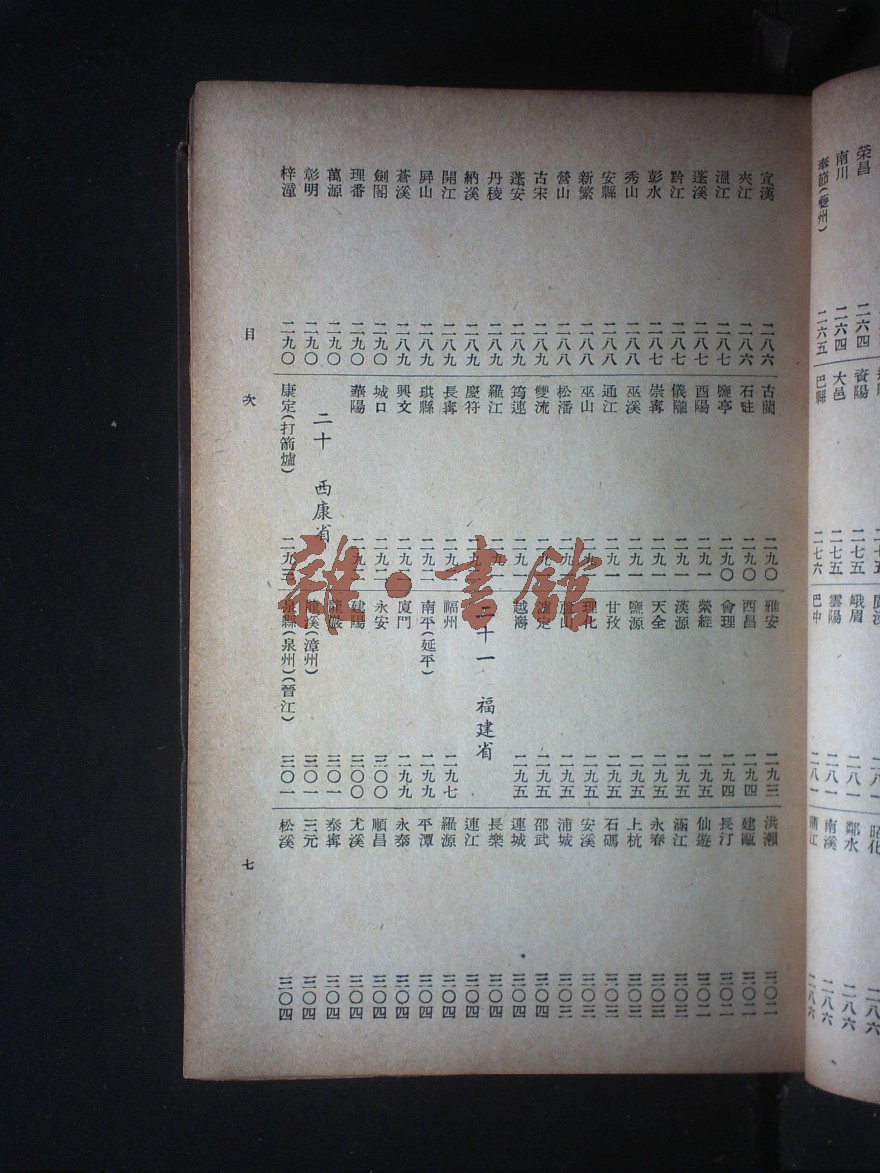 宣漢 二八六
夾江 二八六
溫江 二八七
蓬溪 二八七
黔江 二八七
彭水 二八七
秀山 二八八
安縣 二八八
新繁 二八八
營山 二八八
古宋 二八九
蓬安 二八九
丹稜 二八九
納溪 二八九
開江 二八九
屛山 二八九
蒼溪 二八九
劍閣 二九〇
理番 二九〇
萬源 二九〇
彰明 二九〇
梓潼 二九〇
古藺 二九〇
石砫 二九〇
鹽亭 二九〇
酉陽 二九一
儀隴 二九一
崇寧 二九一
巫溪 二九一
通江 二九一
巫山
松潘
雙流
筠連
羅江
慶符
長寧
珙縣
興文
城口
華陽
二十 西康省
康定(打箭爐)
雅安 二九三
西昌 二九四
會理 二九四
滎經 二九五
漢源 二九五
天全 二九五
鹽源 二九五
甘孜 二九五
理化 二九五
二九五
定 二九五
越嶲 二九五
二十一 福建省
福州 二九七
南平(延平) 二九九
廈門 二九九
永安 三〇〇
建陽 三〇〇
龍巖 三〇一
龍溪(漳州) 三〇一
泉縣(泉州)(晉江) 三〇一
洪瀨 三〇二
建甌 三〇二
長汀 三〇二
仙遊 三〇二
浦江 三〇三
永春 三〇三
上杭 三〇三
石碼 三〇三
安溪 三〇三
浦城 三〇三
邵武 三〇四
連城 三〇四
長樂 三〇四
連江 三〇四
羅源 三〇四
平潭 三〇四
永泰 三〇四
順昌 三〇四
尤溪 三〇四
泰寧 三〇四
三元 三〇四
松溪 三〇四
目次
七
榮昌
南川 二六四
奉節(夔州) 二六五
資陽 二七五
大邑 二七五
巴縣 二七六
峨眉 二八一
雲陽 二八一
巴中 二八一
昭化 二八六
鄰水 二八六
南溪 二八六
雜·書館